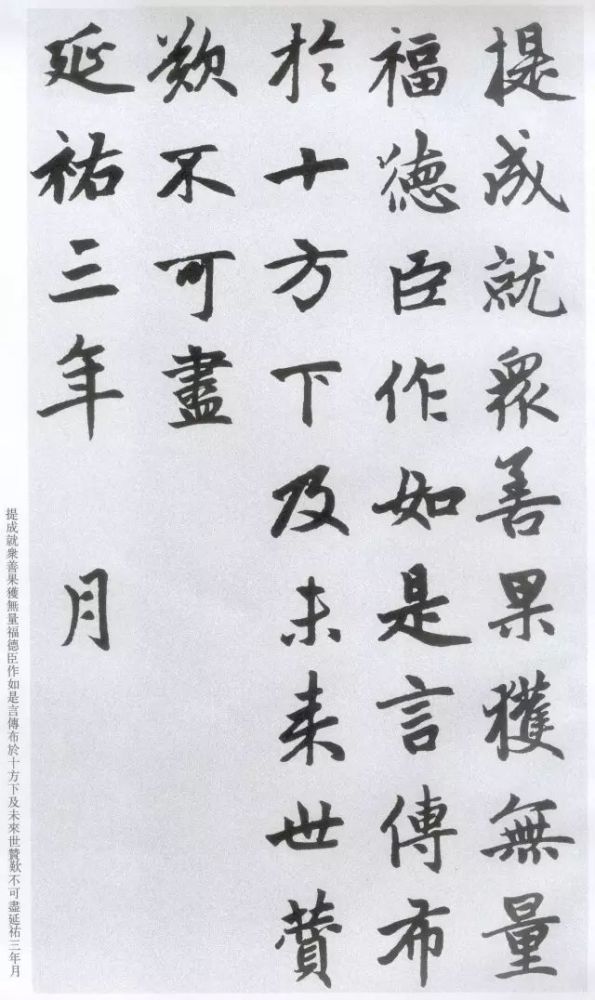 提成就衆善果獲無量
福德臣作如是言傳布
於十方下及未来世賛
歎不可盡
延祐三年 月
提成就衆善果獲無量福德臣作如是言傳布於十方下及未來世贊歎不可盡延祐三年月